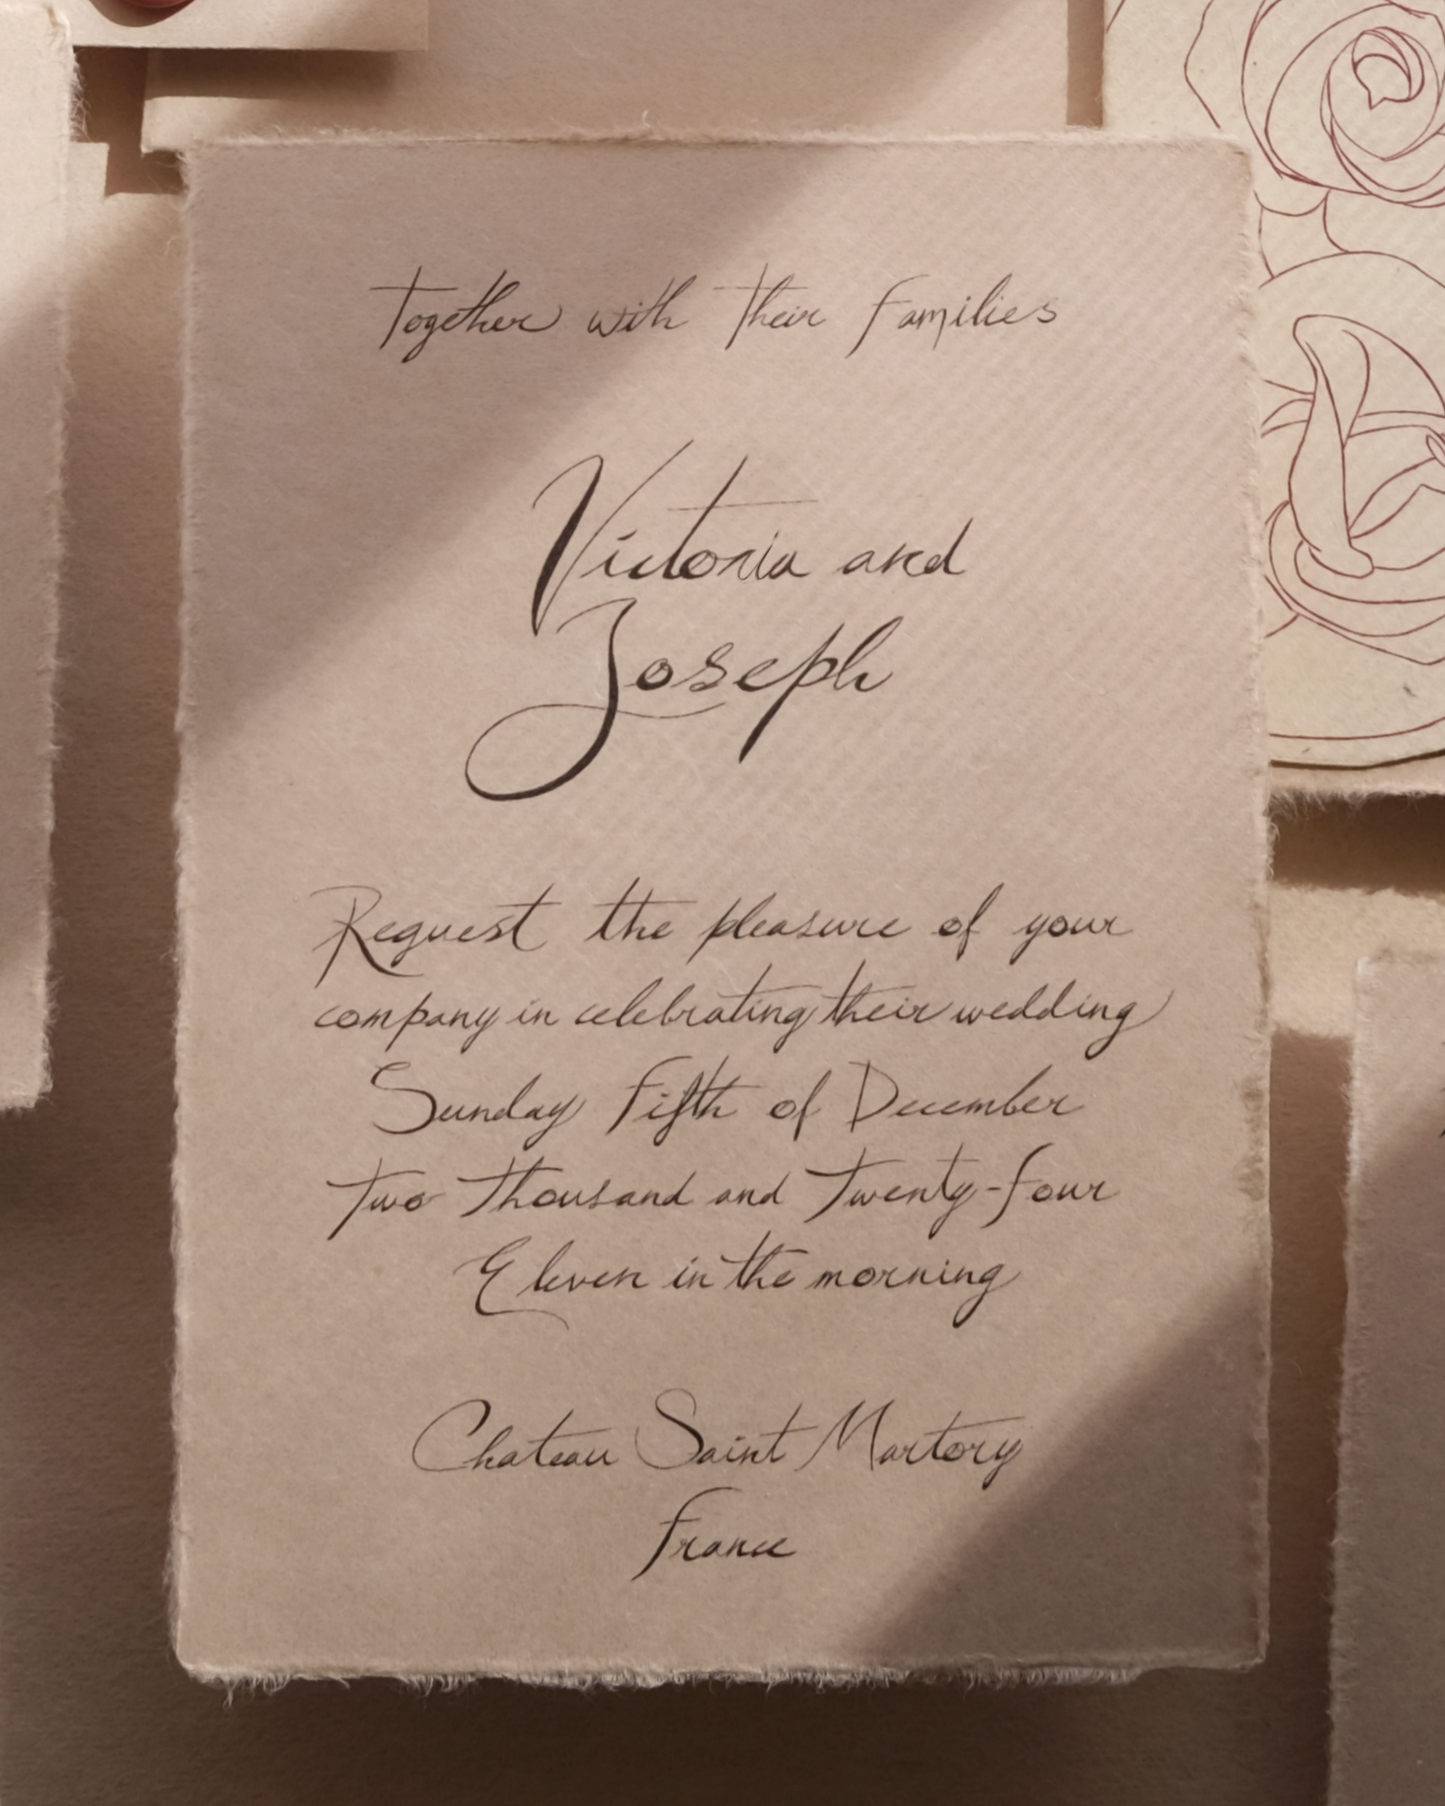 Together with Their Families
Victoria and
Joseph
Request the pleasure of your
company in celebrating their wedding
Sunday Fifth of December
Two Thousand and Twenty-four
Eleven in the morning
Chateau Saint Martory
France